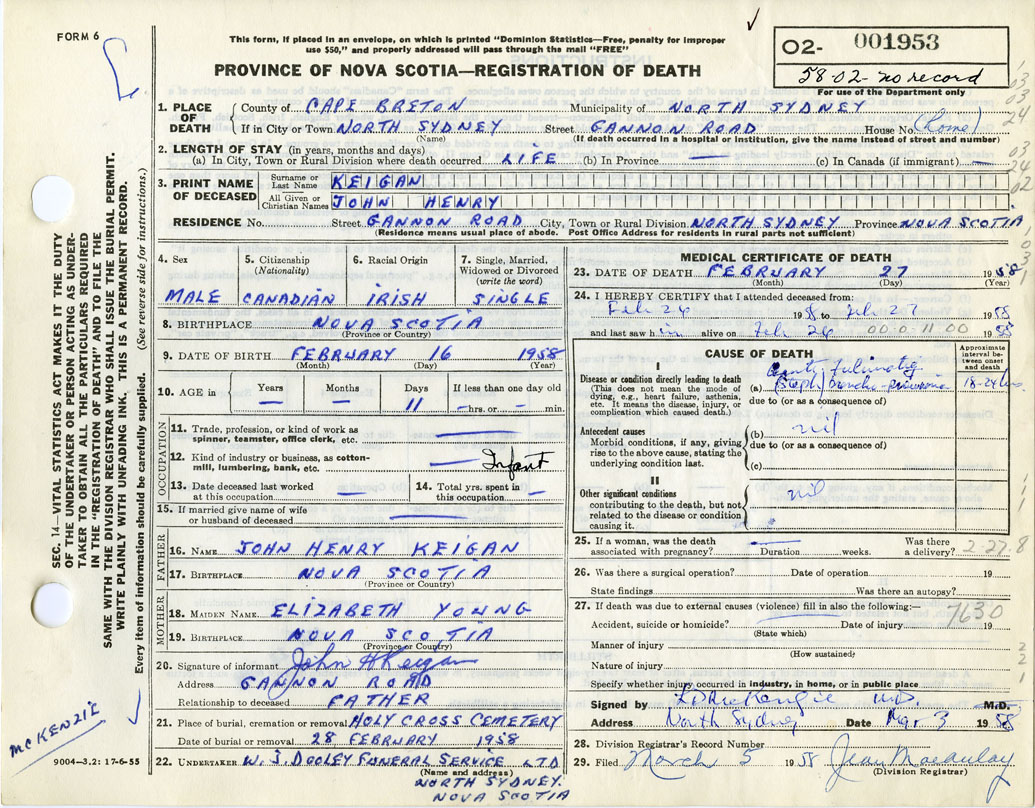 FORM 6
This form, if placed in an envelope, on which is printed "Dominion Statistics—Free, penalty for improper
use $50," and properly addressed will pass through the mail "FREE"
PROVINCE OF NOVA SCOTIA—REGISTRATION OF DEATH
O2- 001953
58-02- no record
For use of the Department only
1. PLACE OF DEATH
County of CAPE BRETON Municipality of NORTH SYDNEY
If in City or Town NORTH SYDNEY Street GANNON ROAD House No. (home)
(Name) (If death occurred in a hospital or institution, give the name instead of street and number)
2. LENGTH OF STAY (in years, months and days)
(a) In City, Town or Rural Division where death occurred LIFE (b) In Province — (c) In Canada (if immigrant) —
3. PRINT NAME OF DECEASED
Surname or Last Name KEIGAN
All Given or Christian Names JOHN HENRY
RESIDENCE No. Street GANNON ROAD City, Town or Rural Division NORTH SYDNEY Province NOVA SCOTIA
(Residence means usual place of abode. Post Office Address for residents in rural parts not sufficient)
4. Sex
MALE
5. Citizenship (Nationality)
CANADIAN
6. Racial Origin
IRISH
7. Single, Married, Widowed or Divorced (write the word)
SINGLE
8. BIRTHPLACE NOVA SCOTIA
(Province or Country)
9. DATE OF BIRTH FEBRUARY 16 1958
(Month) (Day) (Year)
10. AGE in
Years Months Days If less than one day old
— — 11 — hrs. or — min.
OCCUPATION
11. Trade, profession, or kind of work as spinner, teamster, office clerk, etc. —
12. Kind of industry or business, as cotton-mill, lumbering, bank, etc. — Infant
13. Date deceased last worked at this occupation —
14. Total yrs. spent in this occupation —
15. If married give name of wife or husband of deceased —
FATHER
16. NAME JOHN HENRY KEIGAN
17. BIRTHPLACE NOVA SCOTIA
(Province or Country)
MOTHER
18. MAIDEN NAME ELIZABETH YOUNG
19. BIRTHPLACE NOVA SCOTIA
(Province or Country)
20. Signature of informant John H Keigan
Address GANNON ROAD
Relationship to deceased FATHER
21. Place of burial, cremation or removal HOLY CROSS CEMETERY
Date of burial or removal 28 FEBRUARY 1958
22. UNDERTAKER W. J. DOOLEY FUNERAL SERVICE LTD
(Name and address)
NORTH SYDNEY.
NOVA SCOTIA
MEDICAL CERTIFICATE OF DEATH
23. DATE OF DEATH FEBRUARY 27 1958
(Month) (Day) (Year)
24. I HEREBY CERTIFY that I attended deceased from:
Feb 26 1958 to Feb 27 1958
and last saw him alive on Feb 26 00-0-11 00 1958
CAUSE OF DEATH
Approximate interval between onset and death
I
Disease or condition directly leading to death
(This does not mean the mode of dying, e.g., heart failure, asthenia, etc. It means the disease, injury, or complication which caused death.)
(a) broncho-pneumonia 18-24 hrs
due to (or as a consequence of)
Antecedent causes
Morbid conditions, if any, giving rise to the above cause, stating the underlying condition last.
(b) nil
due to (or as a consequence of)
(c)
II
Other significant conditions
contributing to the death, but not related to the disease or condition causing it.
nil
25. If a woman, was the death associated with pregnancy? — Duration weeks. Was there a delivery? 2-27-8
26. Was there a surgical operation? Date of operation 19
State findings Was there an autopsy?
27. If death was due to external causes (violence) fill in also the following:—
Accident, suicide or homicide? Date of injury 19
(State which)
7630
Manner of injury
(How sustained?
Nature of injury
Specify whether injury occurred in industry, in home, or in public place
Signed by McKenzie M.D. M.D.
Address North Sydney Date Mar 3 1958
28. Division Registrar's Record Number
29. Filed March 5 1958 Jean Macaulay
(Division Registrar)
SEC. 14.—VITAL STATISTICS ACT MAKES IT THE DUTY
OF THE UNDERTAKER OR PERSON ACTING AS UNDER-
TAKER TO OBTAIN ALL THE PARTICULARS REQUIRED
IN THE "REGISTRATION OF DEATH" AND TO FILE THE
SAME WITH THE DIVISION REGISTRAR WHO SHALL ISSUE THE BURIAL PERMIT.
WRITE PLAINLY WITH UNFADING INK, THIS IS A PERMANENT RECORD.
Every item of information should be carefully supplied. (See reverse side for instructions.)
McKENZIE
9004—3.2: 17-6-55